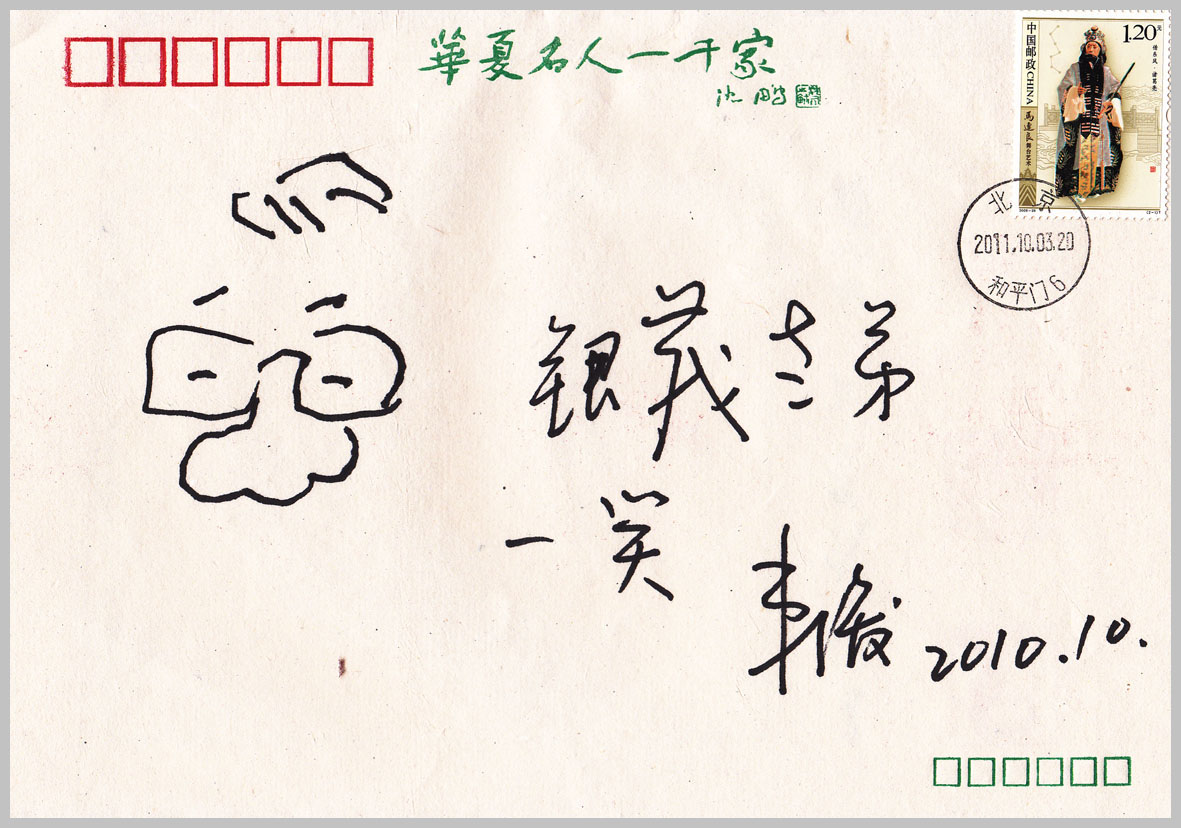 華夏名人一千家
沈鹏
中国邮政 CHINA
1.20元
借东风·诸葛亮
馬連良舞台艺术
北京
2011.10.03.20
和平门6
银茂老弟
一笑
韦启美 2010.10.